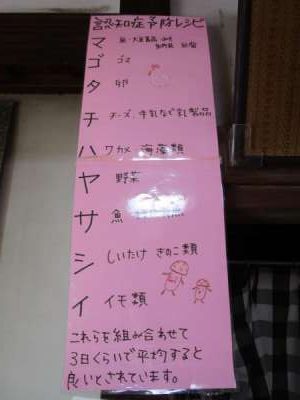 認知症予防レシピ
マ 豆・大豆製品
ゴ ゴマ
タ 卵
チ チーズ、牛乳など乳製品
ハ ワカメ 海藻類
ヤ 野菜
サ 魚
シ しいたけ きのこ類
イ イモ類
これらを組み合わせて
3日くらいで平均すると
良いとされています。